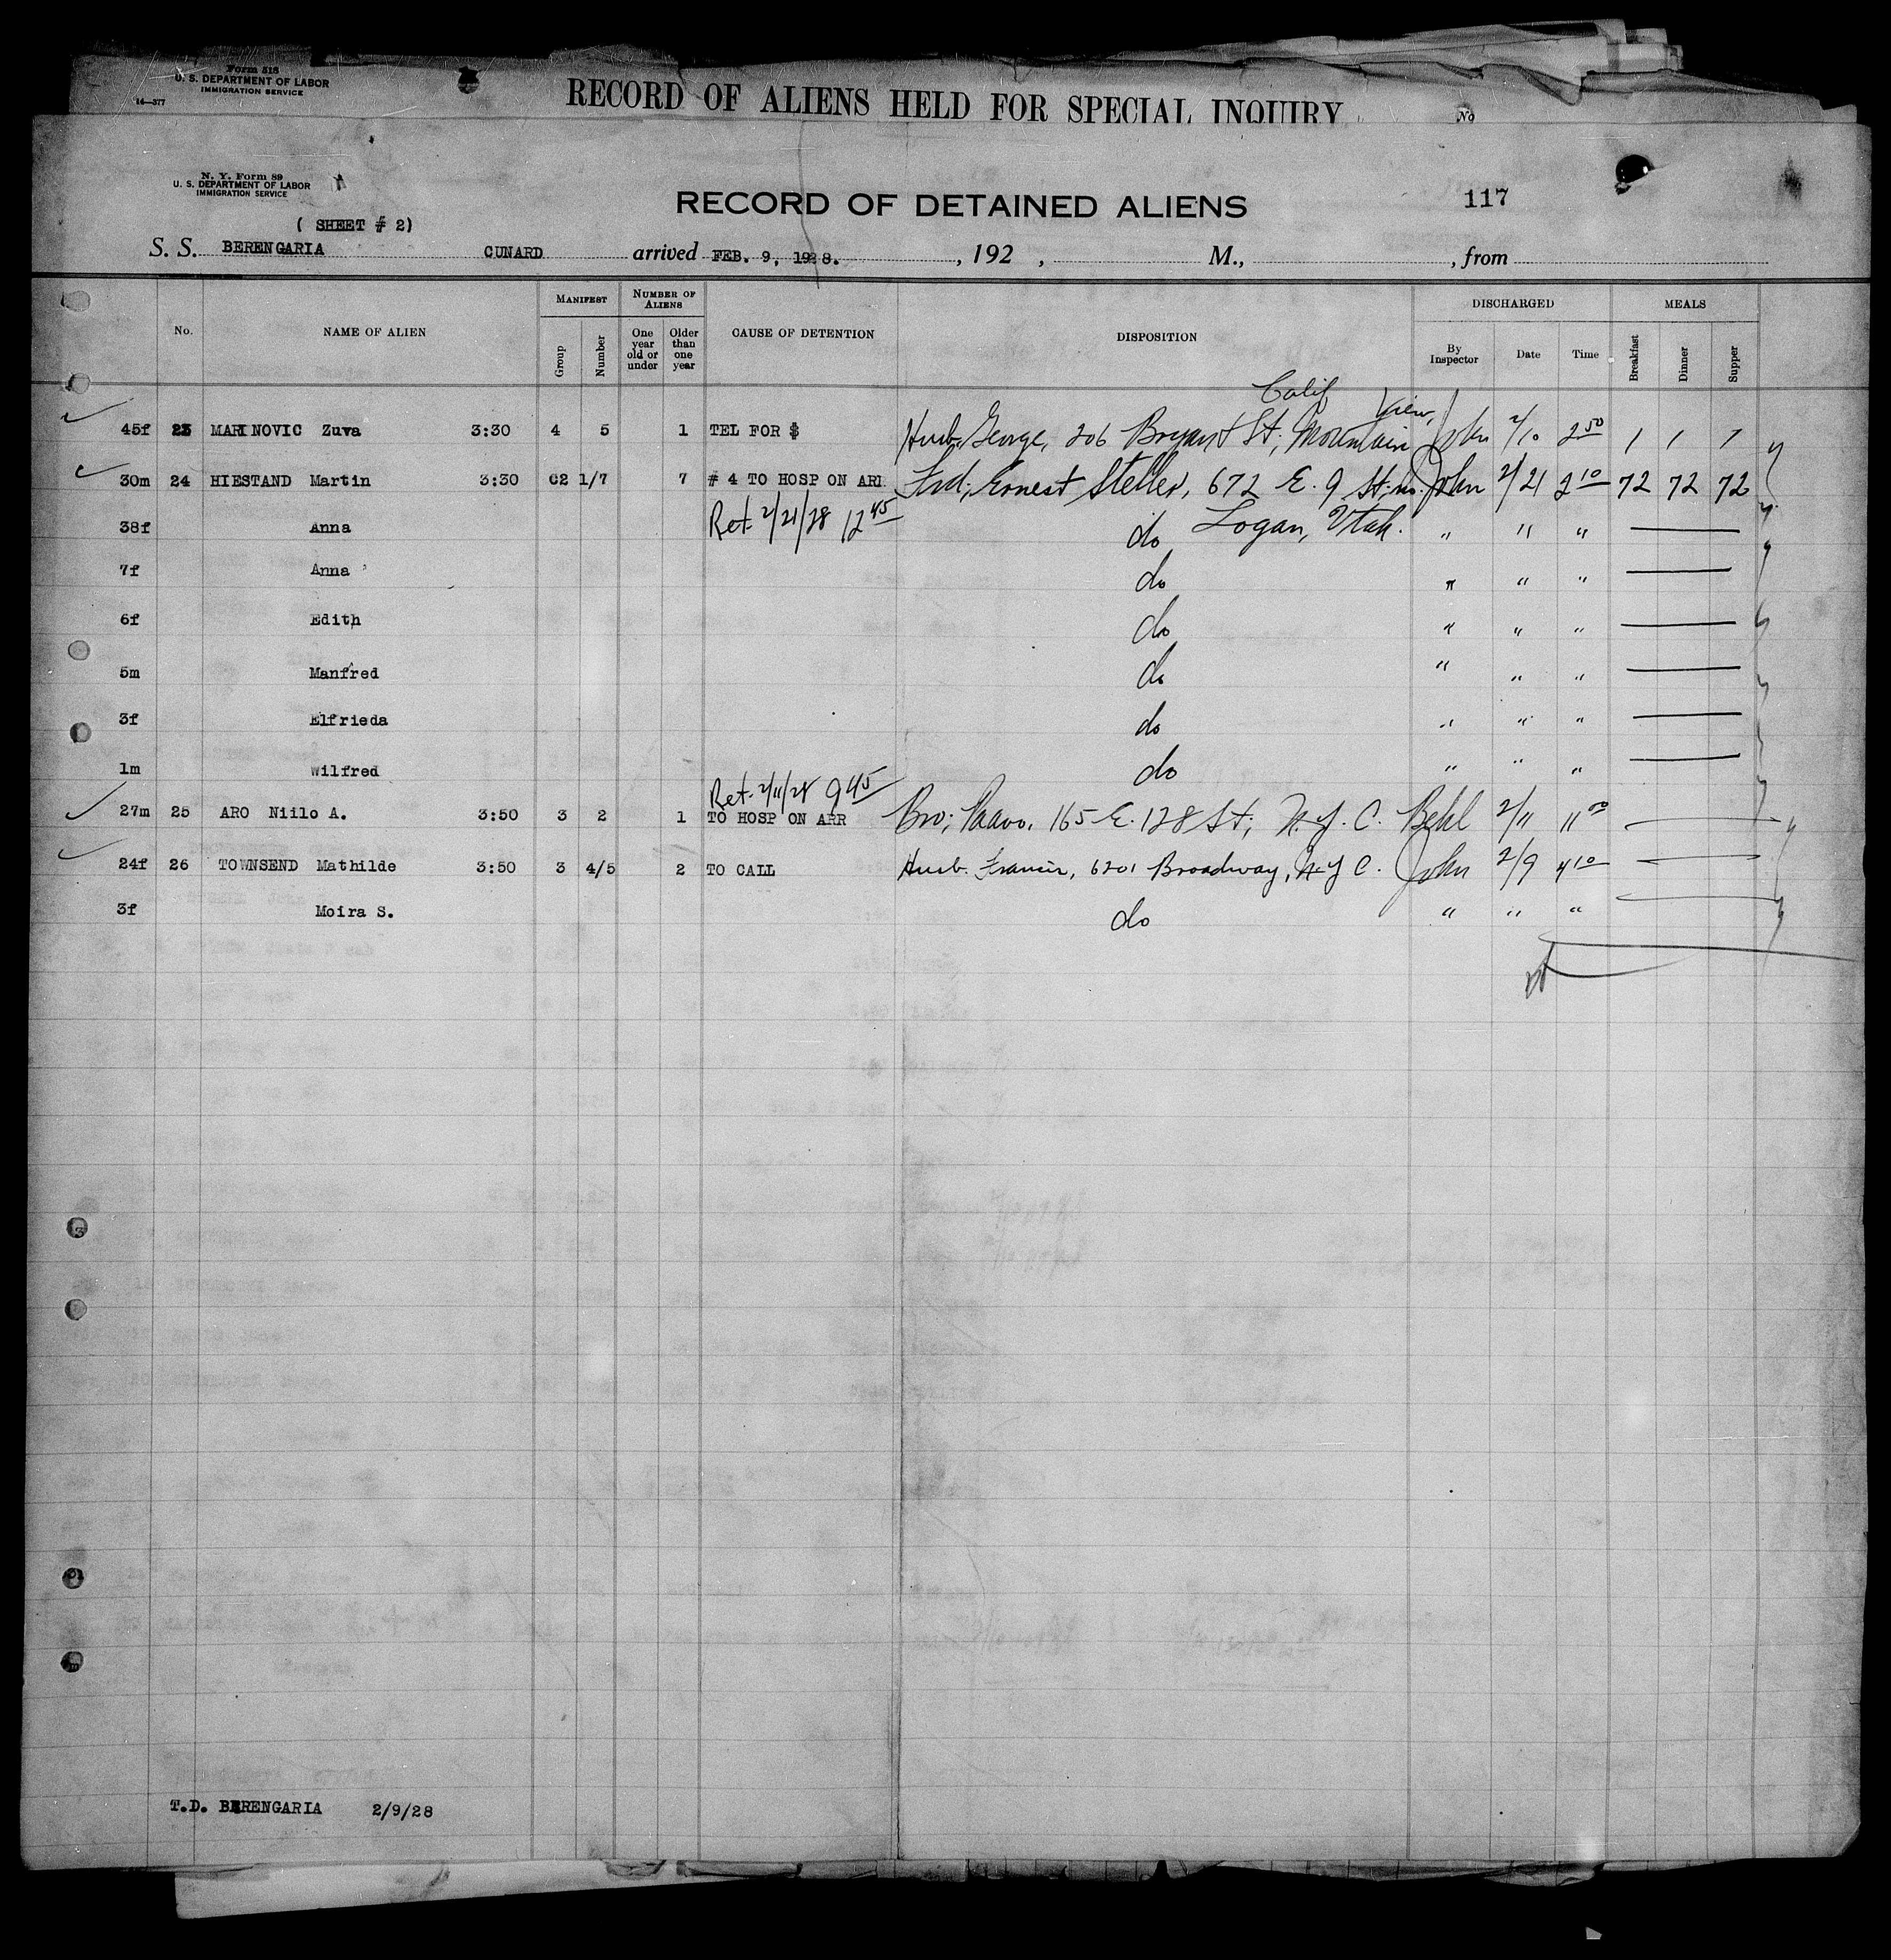 Form 518
U. S. DEPARTMENT OF LABOR
IMMIGRATION SERVICE
14—377
RECORD OF ALIENS HELD FOR SPECIAL INQUIRY
No
N. Y. Form 89
U. S. DEPARTMENT OF LABOR
IMMIGRATION SERVICE
RECORD OF DETAINED ALIENS 117
( SHEET # 2)
S. S. BERENGARIA CUNARD arrived FEB. 9, 1928. , 192 , M., , from
No. NAME OF ALIEN MANIFEST Group Number NUMBER OF ALIENS One year old or under Older than one year CAUSE OF DETENTION DISPOSITION DISCHARGED By Inspector Date Time MEALS Breakfast Dinner Supper
Calif View,
45f 23 MARINOVIC Zuva 3:30 4 5 1 TEL FOR $ Husb. George, 206 Bryant St, Mountain John 2/10 2 50 1 1 1
30m 24 HIESTAND Martin 3:30 C2 1/7 7 # 4 TO HOSP ON ARR Frd; Ernest Steller, 672 E. 9 St. no. John 2/21 2 10 72 72 72
Ret. 2/21/28 12 45 Logan, Utah.
38f Anna do " " "
7f Anna do " " "
6f Edith do " " "
5m Manfred do " " "
3f Elfrieda do " " "
1m Wilfred do " " "
Ret. 2/11/28 9 45
27m 25 ARO Niilo A. 3:50 3 2 1 TO HOSP ON ARR Bro; Paavo, 165 E. 128 St; N. Y. C. Behl 2/11 11 00
24f 26 TOWNSEND Mathilde 3:50 3 4/5 2 TO CALL Husb. Francis, 6201 Broadway, N Y C. John 2/9 4 10
3f Moira S. do " " "
T.D. BERENGARIA 2/9/28